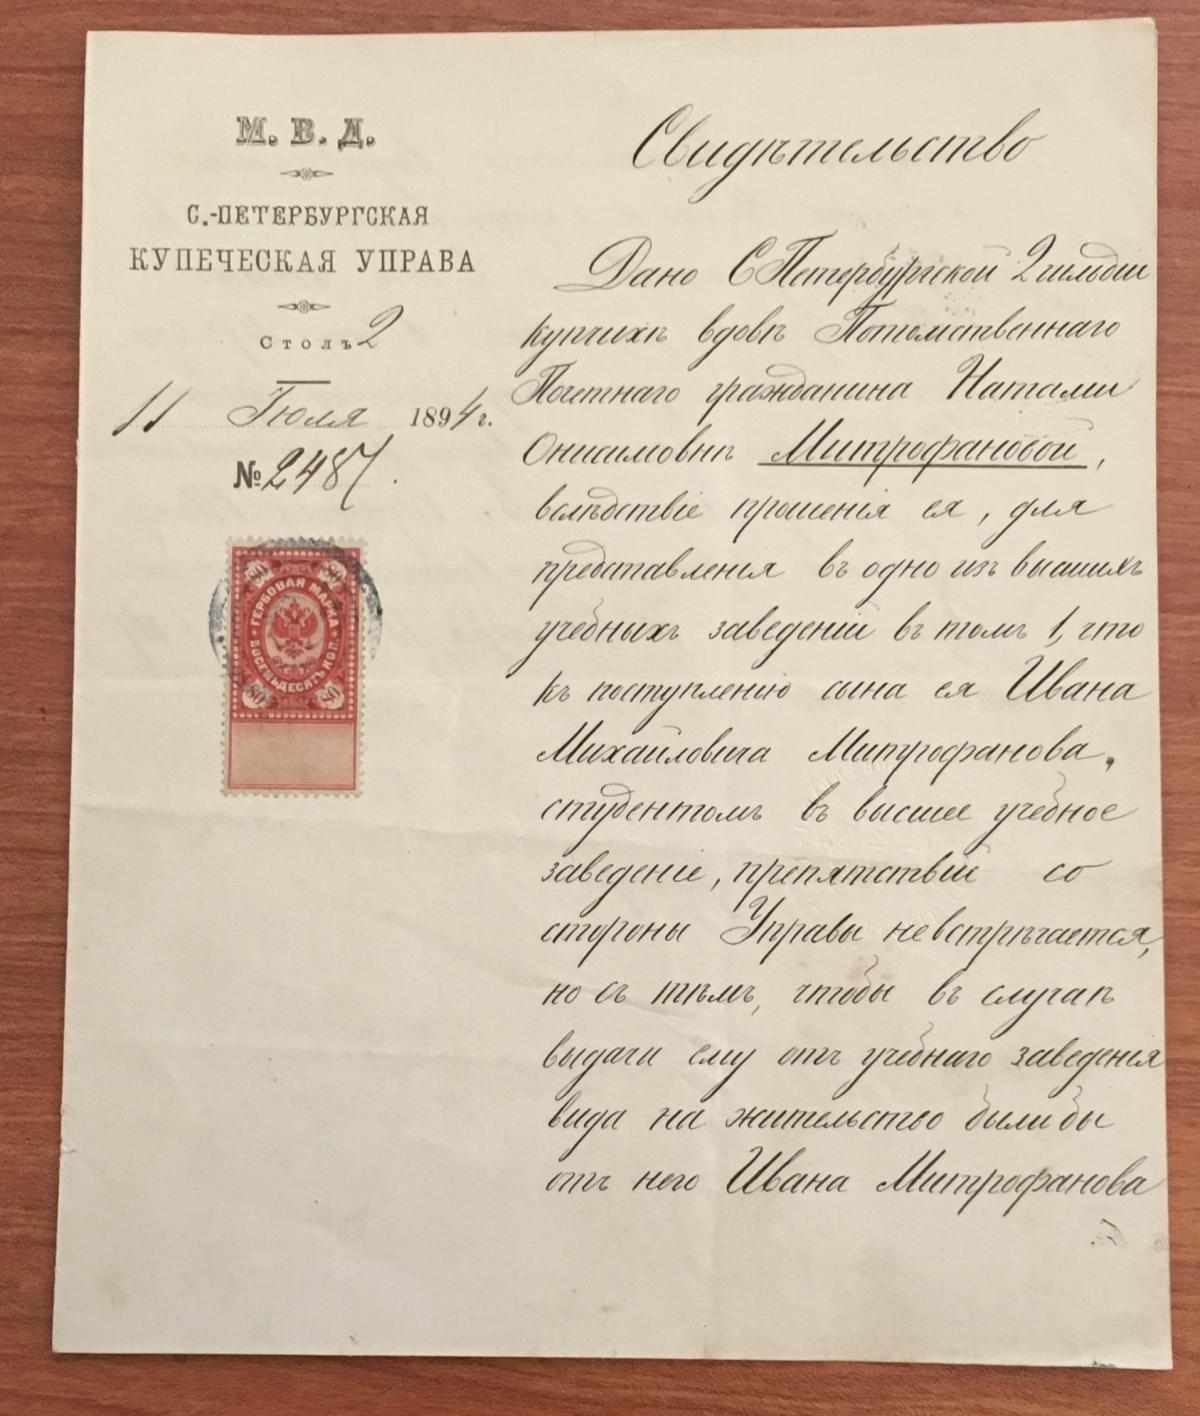 М. В. Д.
С.-ПЕТЕРБУРГСКАЯ
КУПЕЧЕСКАЯ УПРАВА
Столъ 2
11 Іюля 1894 г.
№ 2487.
80 80
ГЕРБОВАЯ МАРКА
ВОСЕМЬДЕСЯТЪ КОП.
80 80
Свидѣтельство
Дано СПетербургской 2 гильдіи
купчихѣ вдовѣ Потомственнаго
Почетнаго гражданина Наталіи
Онисимовнѣ Митрофановой,
вслѣдствіе прошенія ея, для
представленія въ одно изъ высшихъ
учебныхъ заведеній въ томъ 1, что
къ поступленію сына ея Ивана
Михайловича Митрофанова,
студентомъ въ высшее учебное
заведеніе, препятствій со
стороны Управы не встрѣчается,
но съ тѣмъ, чтобы въ случаѣ
выдачи ему отъ учебнаго заведенія
вида на жительство были бы
отъ него Ивана Митрофанова